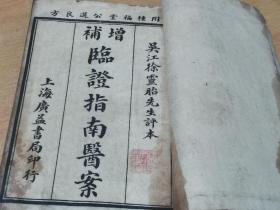 附種福堂公選良方
吳江徐靈胎先生評本
增補
臨證指南醫案
上海廣益書局印行